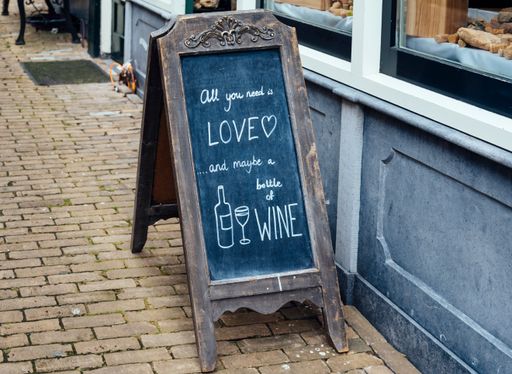 All you need is
LOVE♡
....and maybe a
bottle
of
WINE